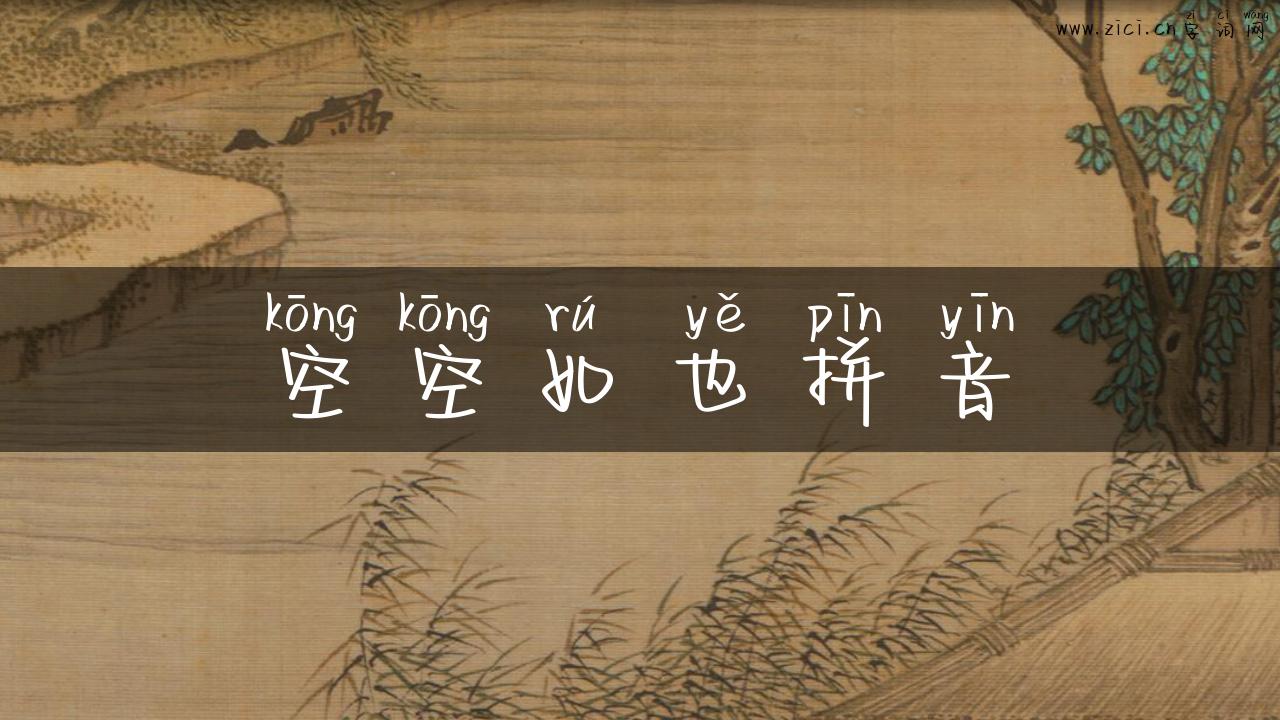 zì cí wǎng
www.zici.cn字词网
kōng kōng rú yě pīn yīn
空空如也拼音